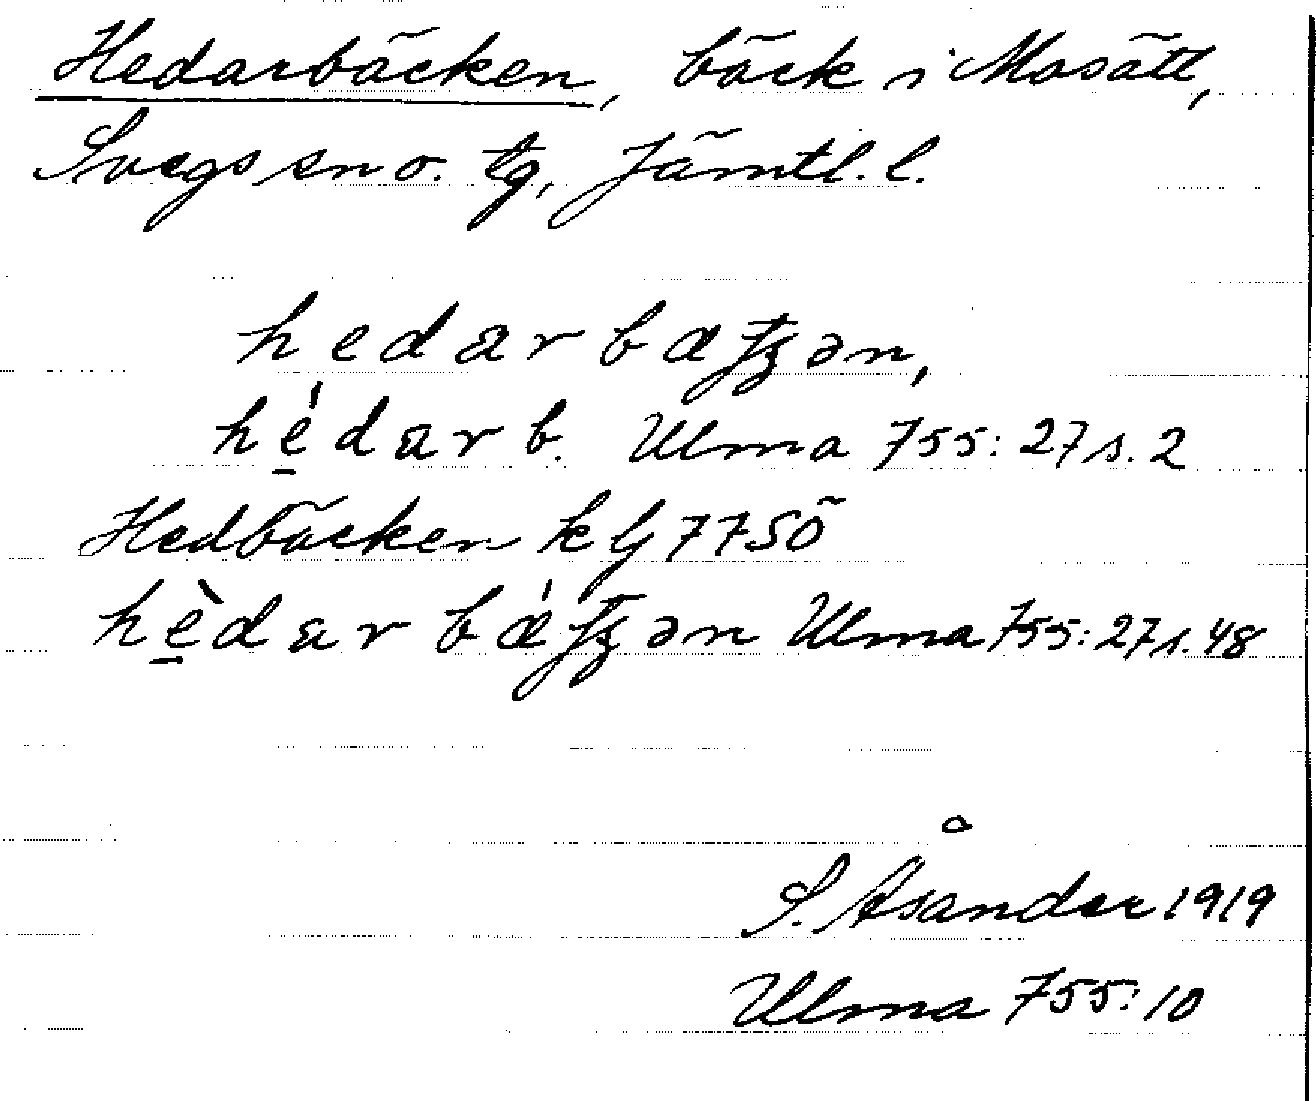 Hedarbäcken, bäck i Mosätt,
Svegs sn o. tg, Jämtl. l.
hedarbæʈʂən,
hé̠darb. Ulma 755:27 s. 2
Hedbäcken k G 77SÖ
hè̠dar bǽʈʂən Ulma 755:27 s. 48
S. Åsander 1919
Ulma 755:10